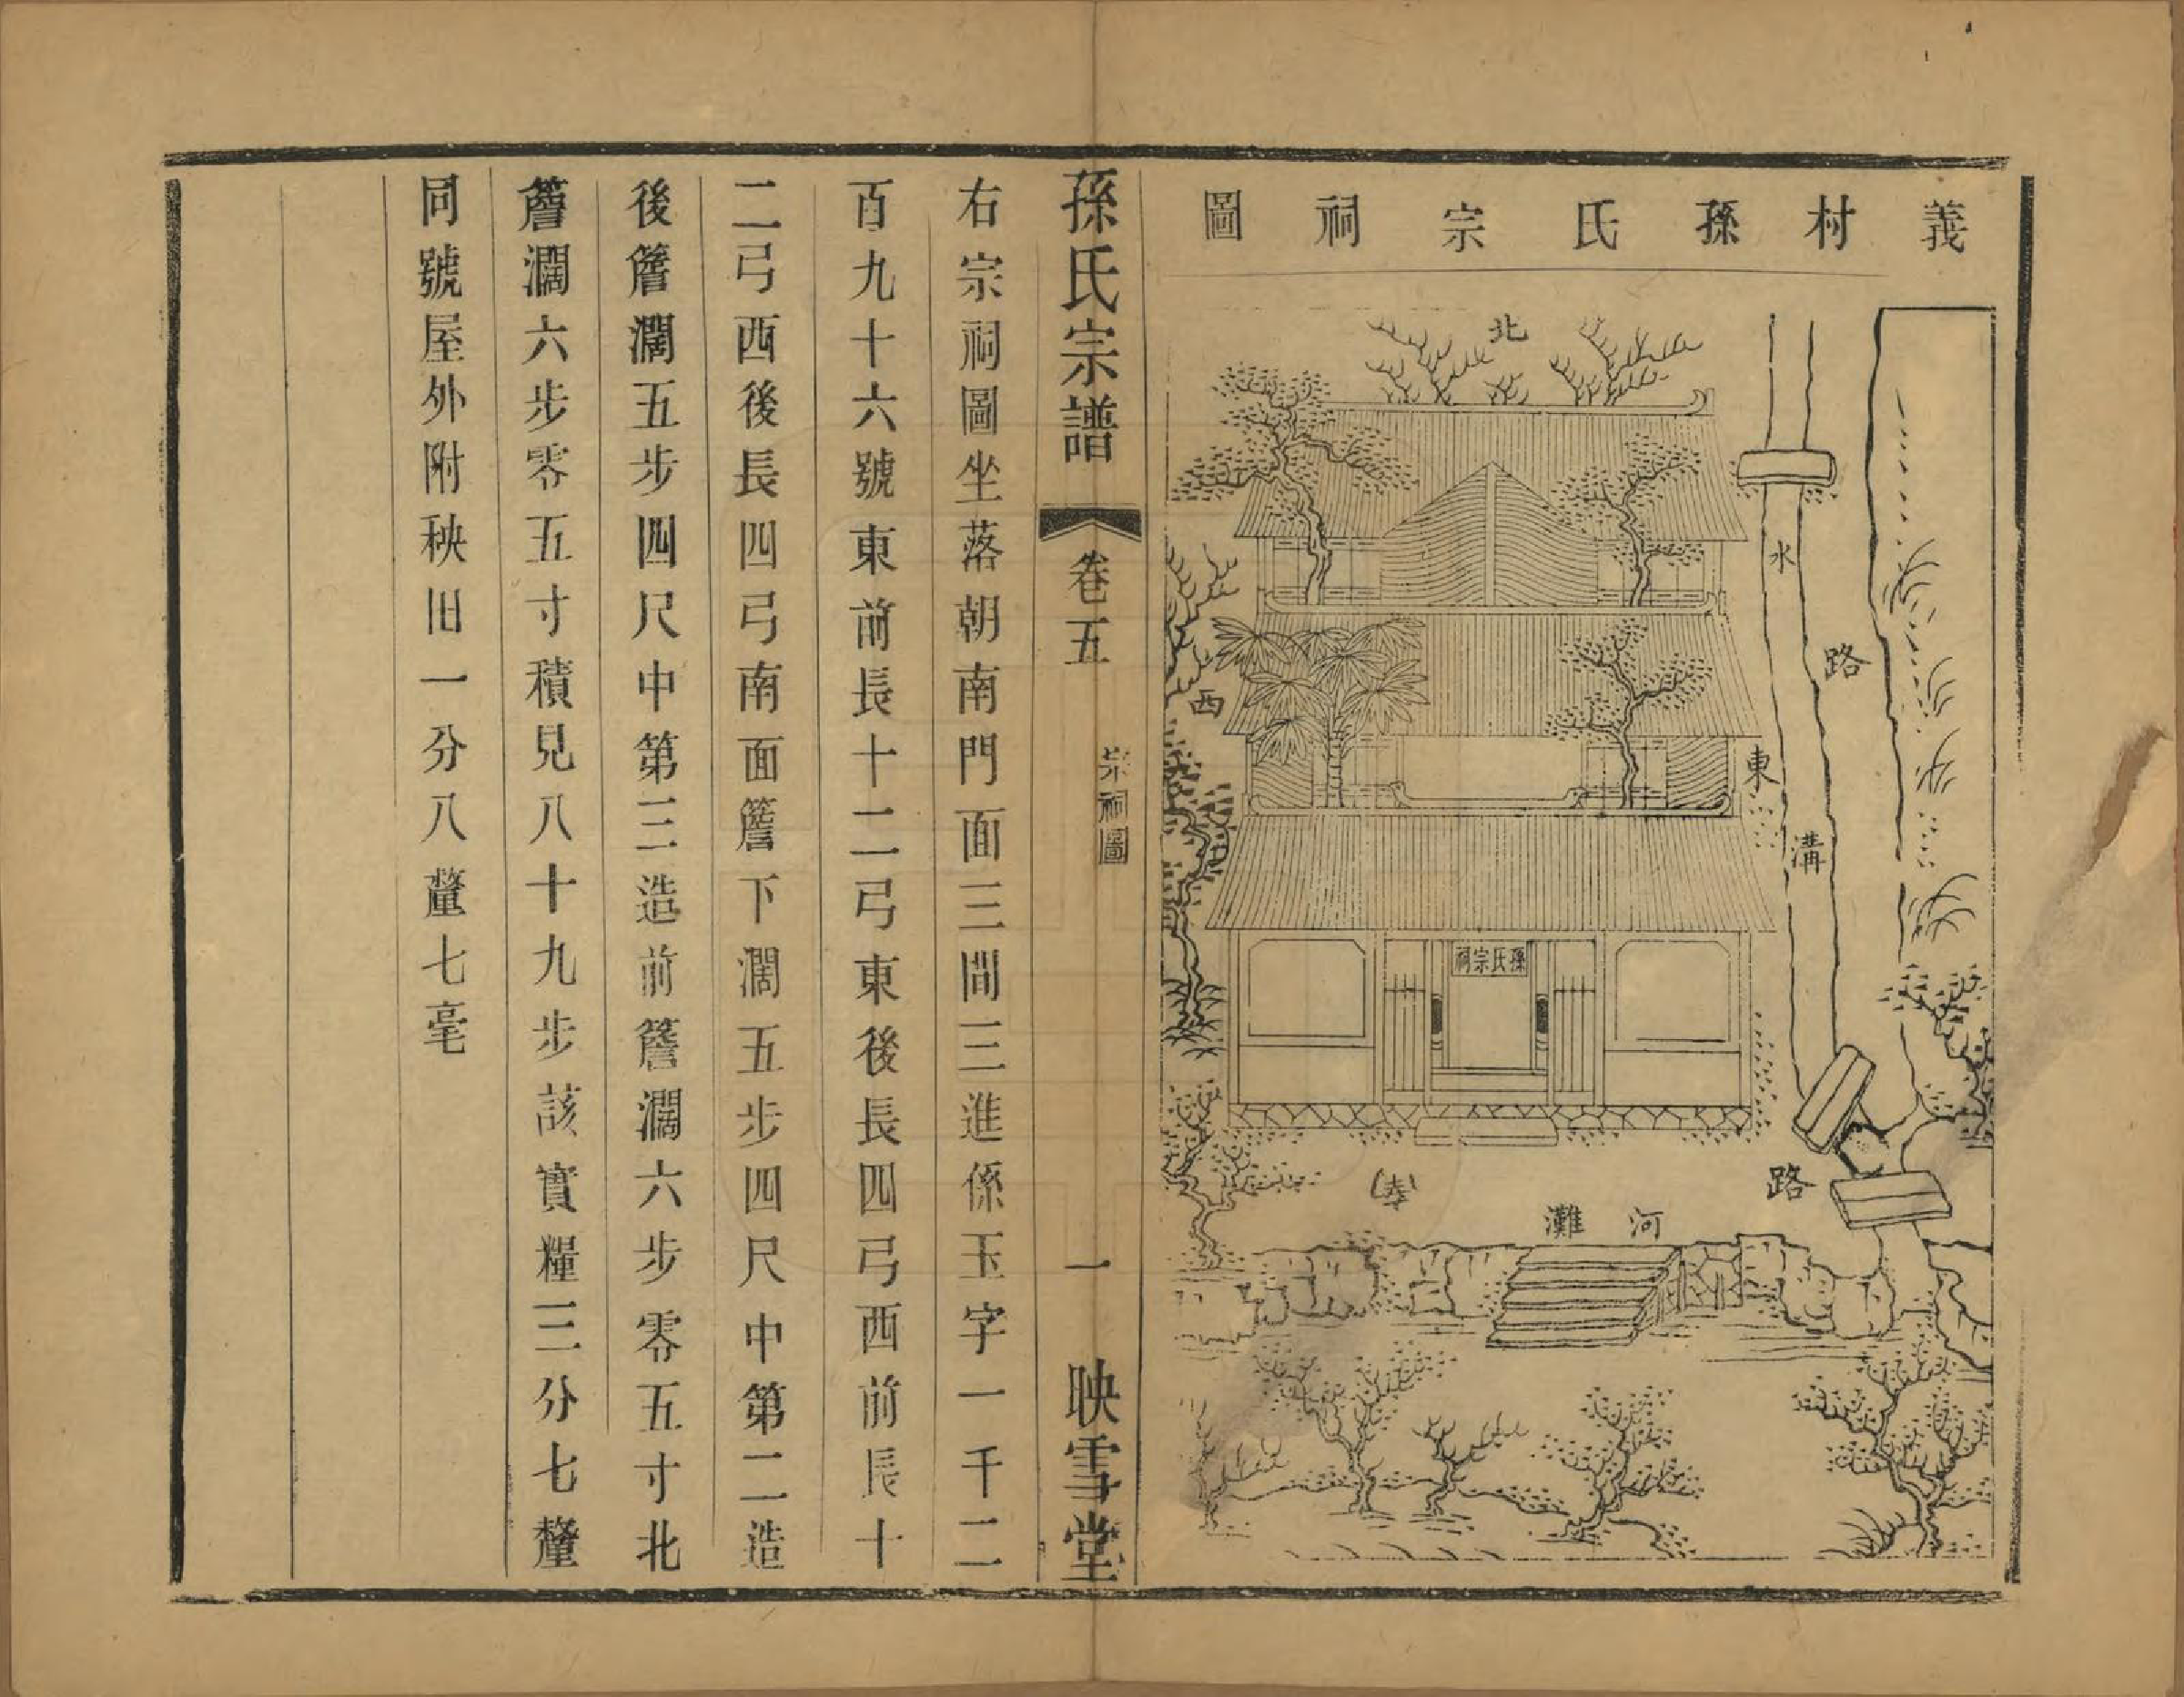 義村孫氏宗祠圖
北
水
路
西
東
溝
孫氏宗祠
路
河灘
孫氏宗譜
卷五
宗祠圖
一
映雪堂
右宗祠圖坐落朝南門面三間三進係玉字一千二
百九十六號東前長十二弓東後長四弓西前長十
二弓西後長四弓南面簷下濶五步四尺中第二造
後簷濶五步四尺中第三造前簷濶六步零五寸北
簷濶六步零五寸積見八十九步該實糧三分七釐
同號屋外附秧田一分八釐七毫